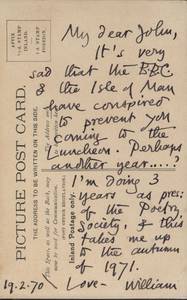 My dear John,
It's very
sad that the BBC
& the Isle of Man
have conspired
to prevent you
coming to the
Luncheon. Perhaps
another year....?
I'm doing 3
years as pres:
of the Poetry
Society, & this
takes me up
to the autumn
of 1971.
Love - William
19.2.70
PICTURE POST CARD.
THE ADDRESS TO BE WRITTEN ON THIS SIDE.
AFFIX
½d STAMP
INLAND.
1d STAMP
FOREIGN.
Inland Postage only.